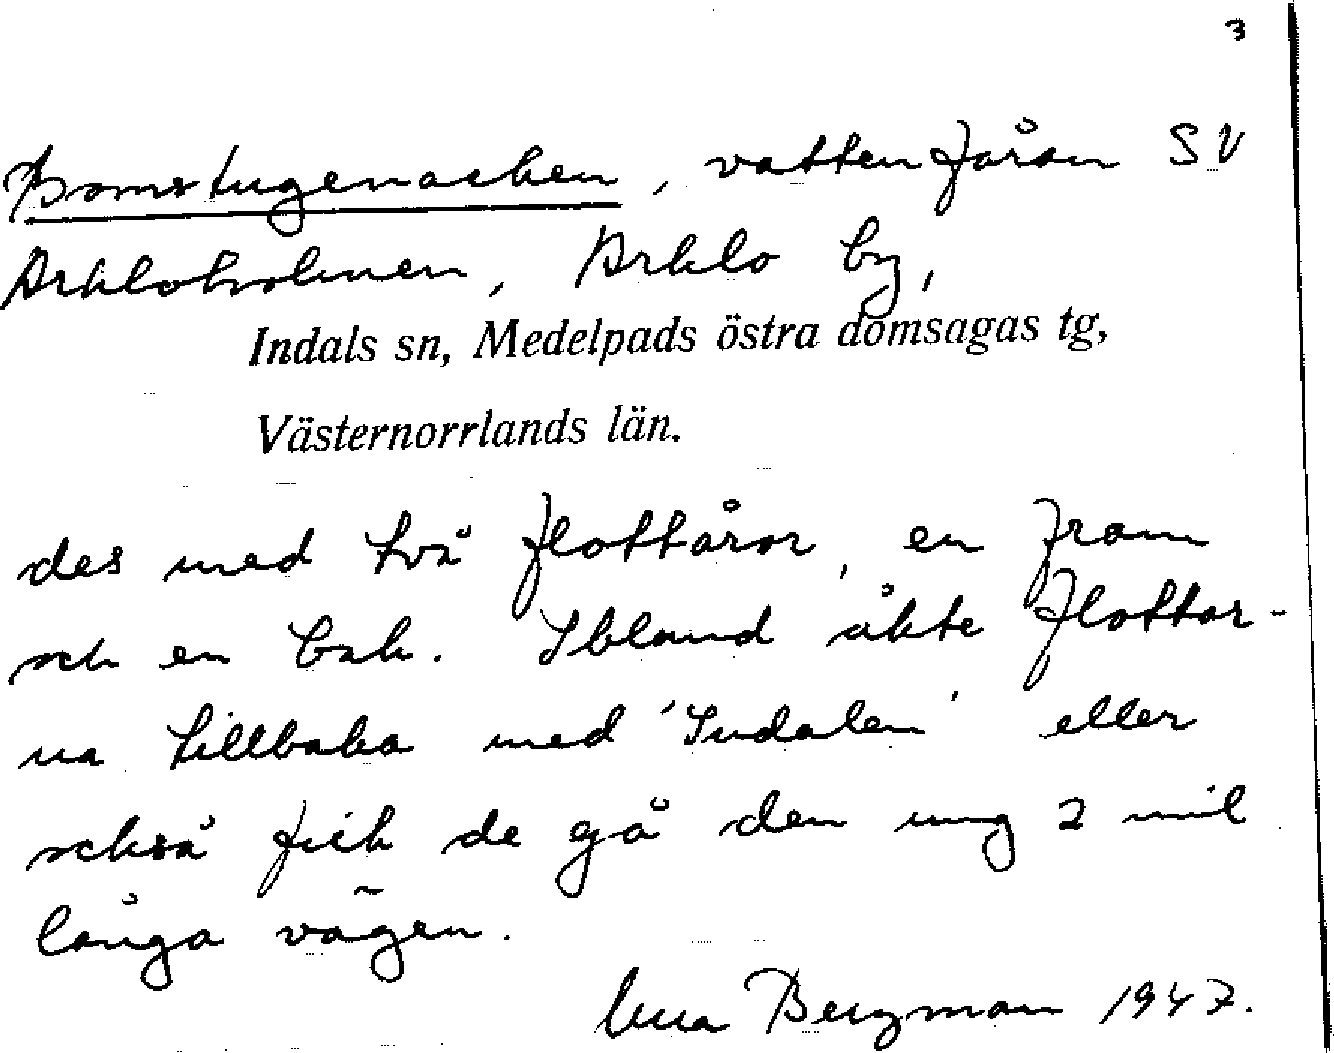 3
Bomstugenacken, vattenfåran SV
Arkloholmen, Arklo by,
Indals sn, Medelpads östra domsagas tg,
Västernorrlands län.
des med två flottåror, en fram
och en bak. Ibland åkte flottar-
na tillbaka med 'Indalen' eller
också fick de gå den ung 2 mil
långa vägen.
Bergman 1947.